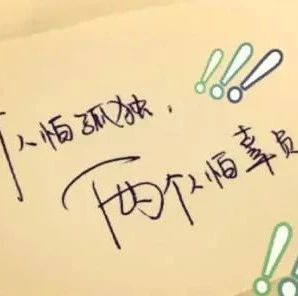 个人怕孤独，
两个人怕辜负